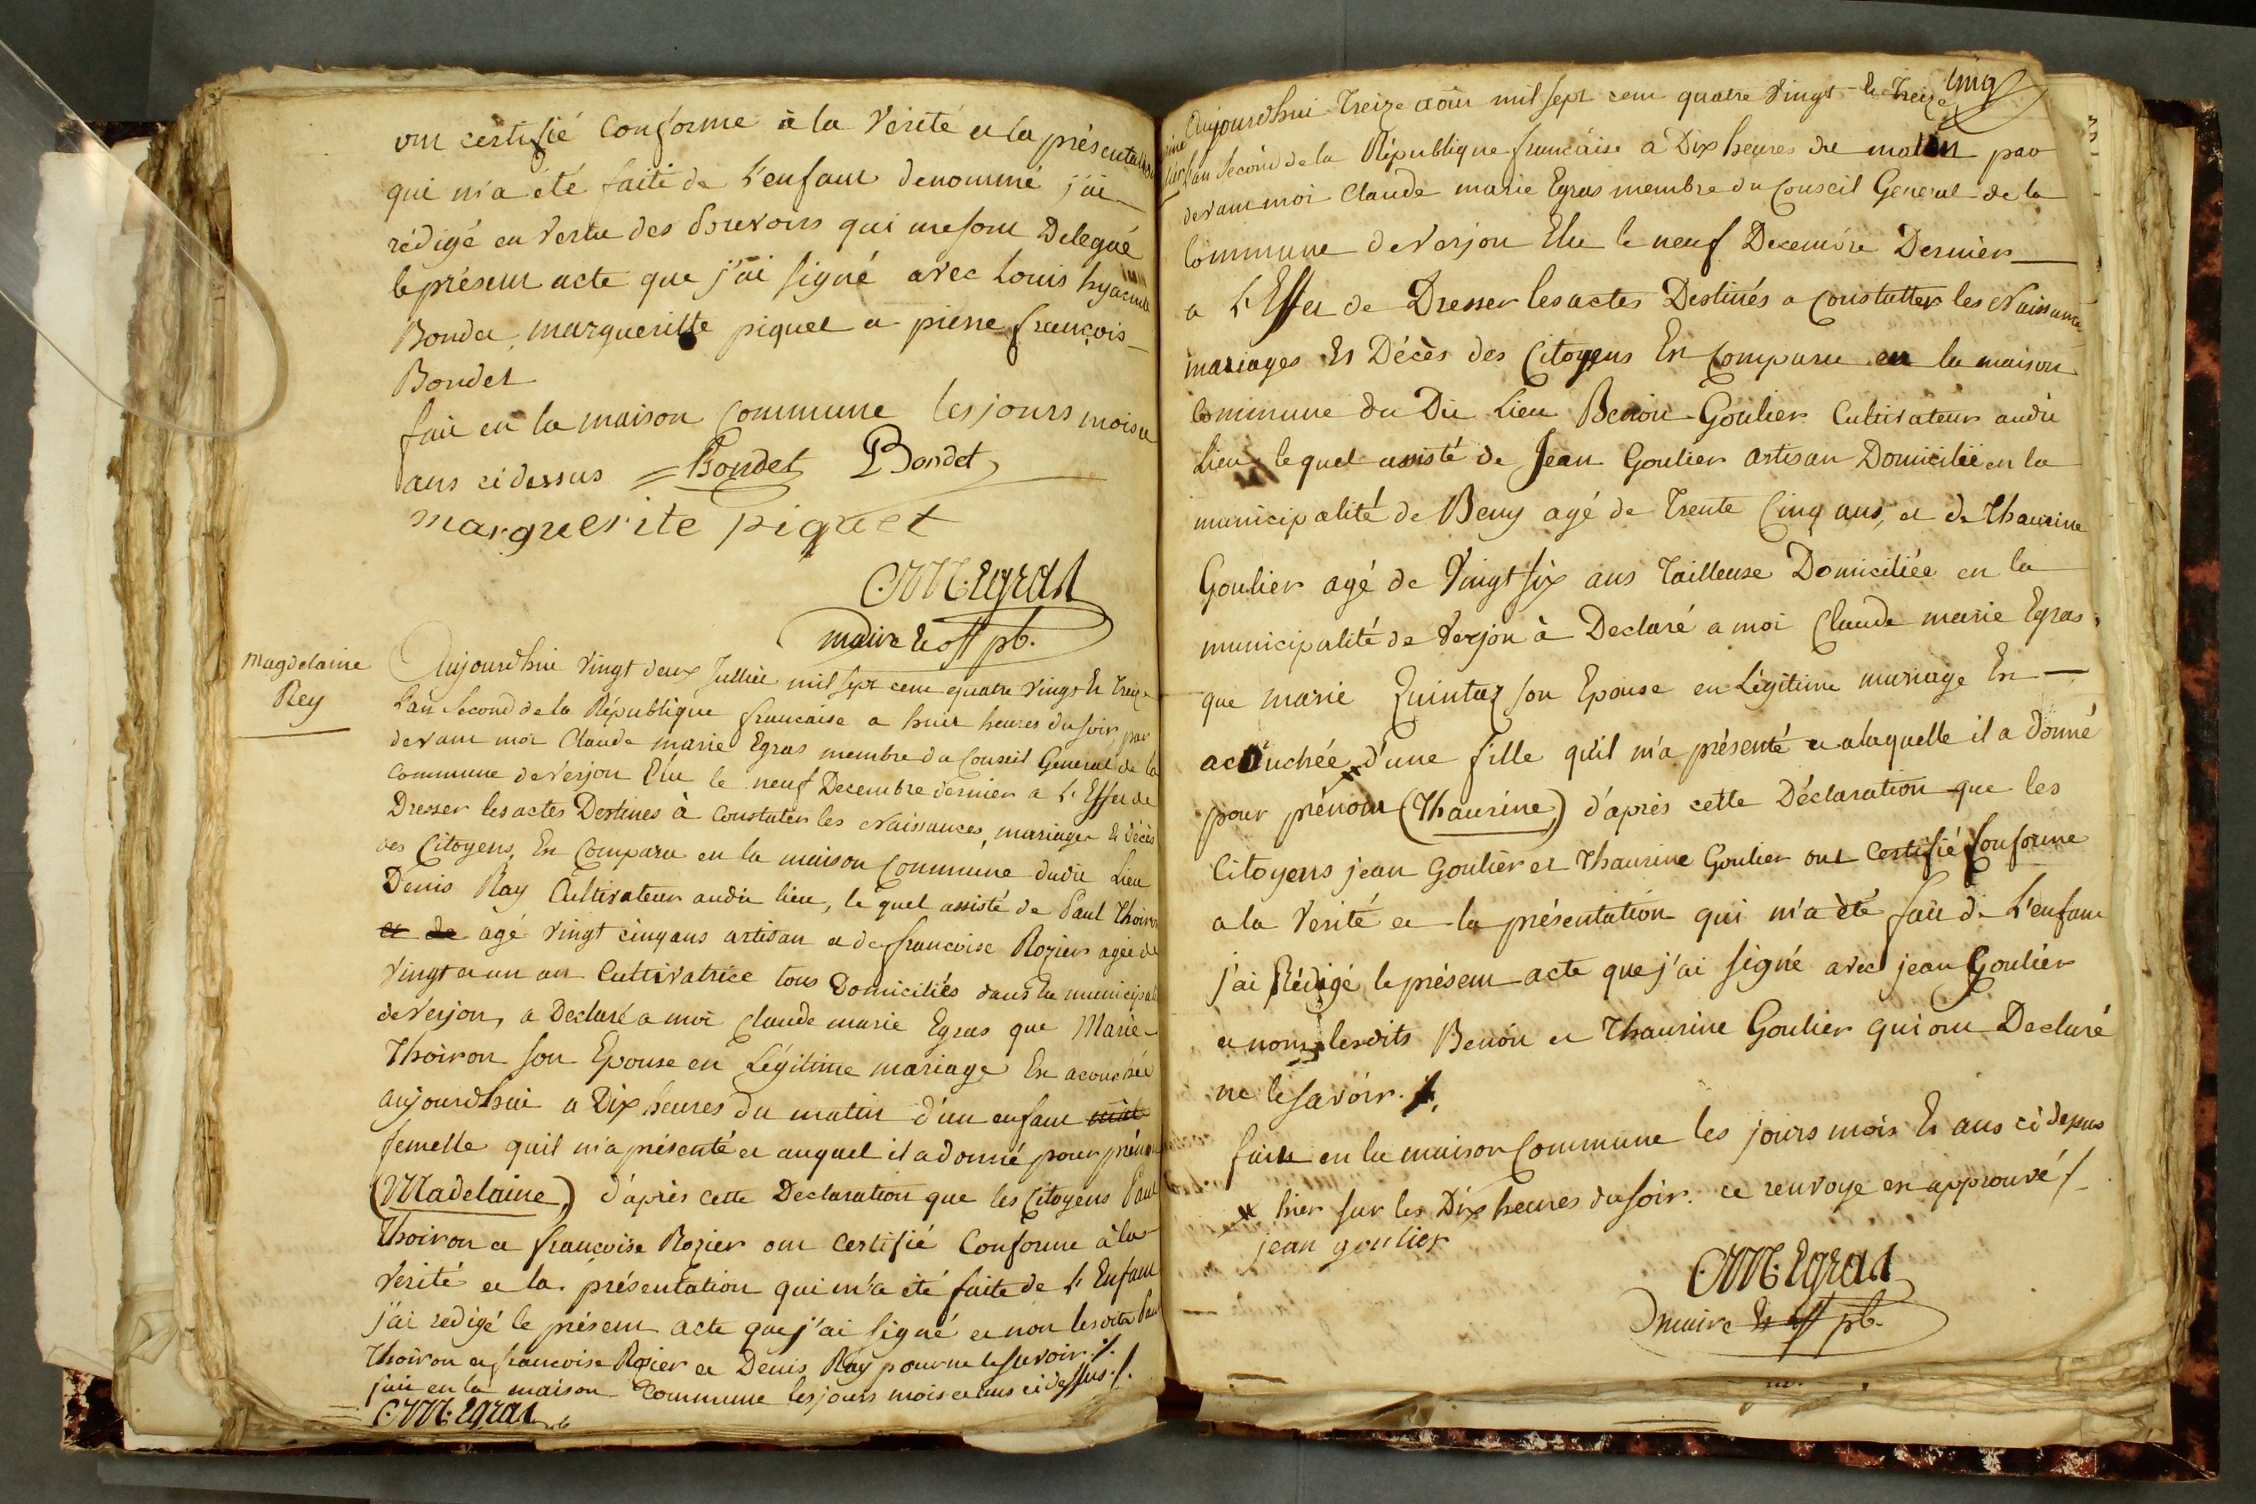 ont certifié Conforme à la Verité et la présentation
qui m'a été faite de L'enfant denommé j'ai
rédigé en Vertu des Pouvoirs qui me sont Delegué
le présent acte que j'ai signé avec Louis hyacinte
Bondet, margueritte piquet et pierre françois
Bondet
fait en la maison Commune les jours mois et
ans ci dessus = Bondet Bondet
marguerite piquet
C.M. Egras
maire et off pb.
Magdelaine
Rey
Aujourdhui Vingt deux Juillet mil sept cent quatre Vingt Et treize
L'an Second de la République francaise a huit heures du soir par
devant moi Claude marie Egras membre du Conseil General de la
Commune de Verjon Elu le neuf Decembre dernier a L'Effet de
Dresser les actes Destinés à Constater les Naissances, mariages Et décès
des Citoyens, Est Comparu en la maison Commune dudit Lieu
Denis Ray Cultivateur audit lieu, le quel assisté de Paul Thoiron
et de agé Vingt cinq ans artisan et de francoise Rozier agée de
Vingt et un an Cultivatrice tous Domiciliés dans la municipali
de Verjon, a Declaré a moi Claude marie Egras que Marie
Thoiron son Epouse en Légitime mariage Est acouchée
aujourdhui a Dix heures du matin d'un enfant mâle
femelle quil m'a présenté et auquel il a donné pour prénom
(Madelaine) d'après cette Declaration que les Citoyens Paul
Thoiron et francoise Rozier ont Certifié Conforme à la
Verité et la présentation qui m'a été faite de L'Enfant
j'ai redigé le présent acte que j'ai signé et non lesdits Paul
Thoiron et francoise Rozier et Denis Ray pour ne le savoir ./.
fait en la maison Commune les jours mois et ans ci dessus ./.
C.M. Egras
cinq
Aujourdhui Treize aoûst mil sept cent quatre Vingt Et Treize
L'an Second de la République francaise a Dix heures du matin par
devant moi Claude marie Egras membre du Conseil General de la
Commune de Verjon Elu le neuf Decembre Dernier
a L'Effet de Dresser les actes Destinés a Constatter les Naissances
mariages Et Décès des Citoyens Est Comparu en la maison
Commune du Dit Lieu Benoit Goulier Cultivateur audit
Lieu, le quel assisté de Jean Goulier artisan Domicilié en la
municipalité de Beny agé de Trente Cinq ans, et de Thaurine
Goulier agé de Vingt six ans Tailleuse Domiciliée en la
municipalité de Verjon à Declaré a moi Claude marie Egras,
que marie Quintaz son Epouse en Légitime mariage Est
acouchée d'une fille qu'il m'a présenté et alaquelle il a donné
pour prénom (Thaurine) d'après cette Déclaration que les
Citoyens jean Goulier et Thaurine Goulier ont Certifié Conforme
a la Verité et la présentation qui m'a été fait de L'enfant
j'ai Rédigé le présent acte que j'ai signé avec jean Goulier
et nom lesdits Benoit et Thaurine Goulier qui ont Declaré
ne le savoir. ./.
faite en la maison Commune les jours mois Et ans ci dessus
x hier sur les Dix heures du soir. ce renvoye est approuvé /
jean goulier
C.M. Egras
maire et off pb.